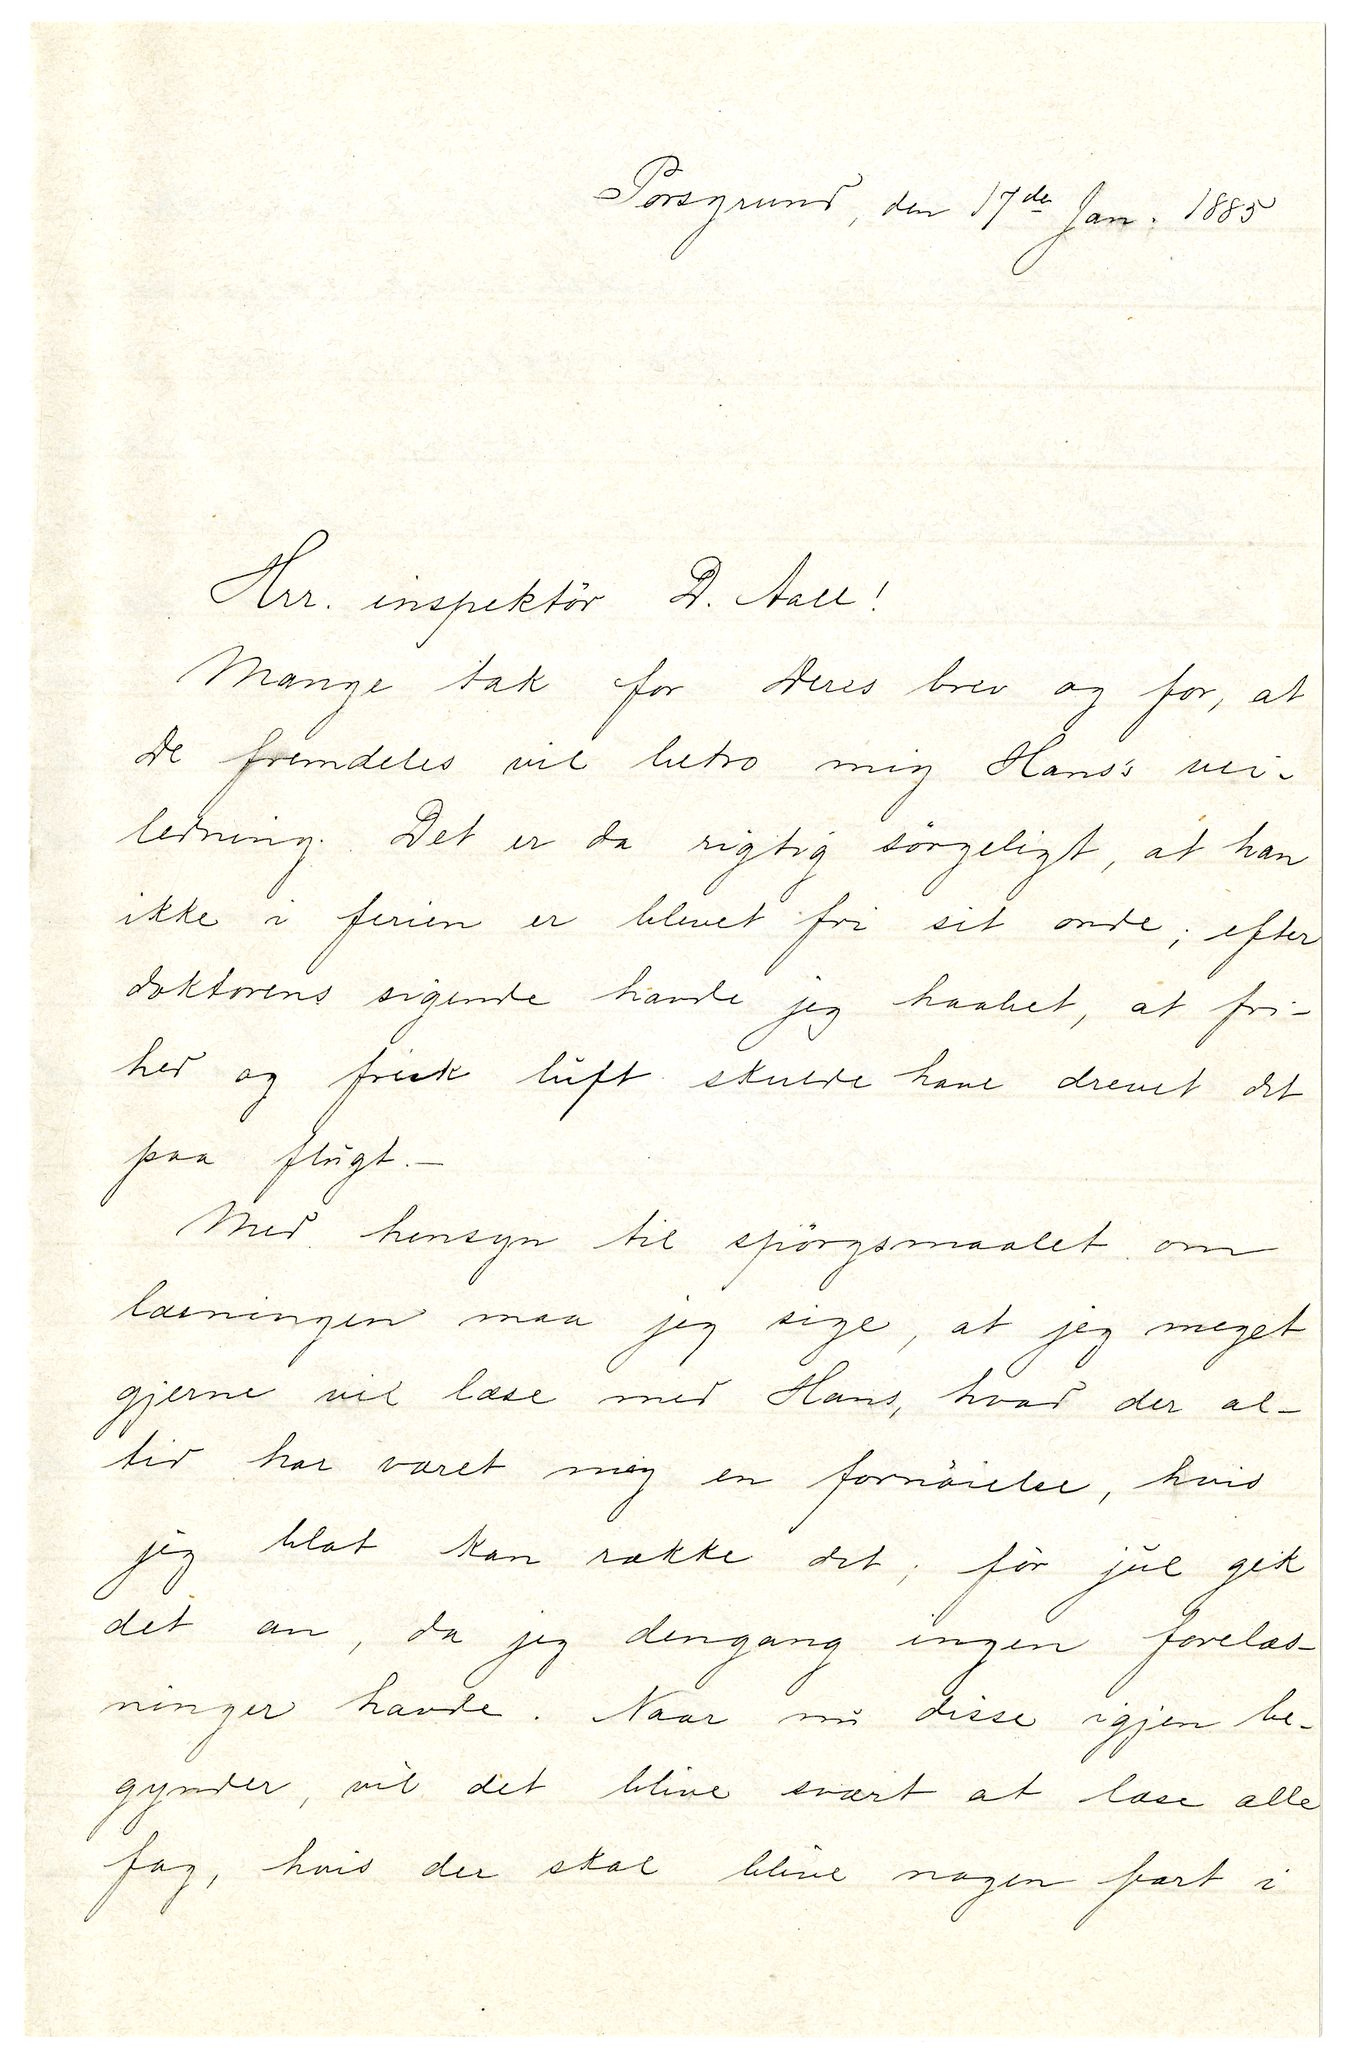 Porsgrund, den 17de Jan. 1885
Hrr. inspektör D. Aall!
Mange tak for Deres brev og for, at
De fremdeles vil betro mig Hans's vei-
ledning. Det er da rigtig sörgeligt, at han
ikke i ferien er blevet fri sit onde; efter
doktorens sigende havde jeg haabet, at fri-
hed og frisk luft skulde have drevet det
paa flugt.—
Med hensyn til spörgsmaalet om
læsningen maa jeg sige, at jeg meget
gjerne vil læse med Hans, hvad der al-
tid har været mig en fornöielse, hvis
jeg blot kan række det; för jul gik
det an, da jeg dengang ingen forelæs-
ninger havde. Naar nu disse igjen be-
gynder, vil det blive svært at læse alle
fag, hvis der skal blive nogen fart i